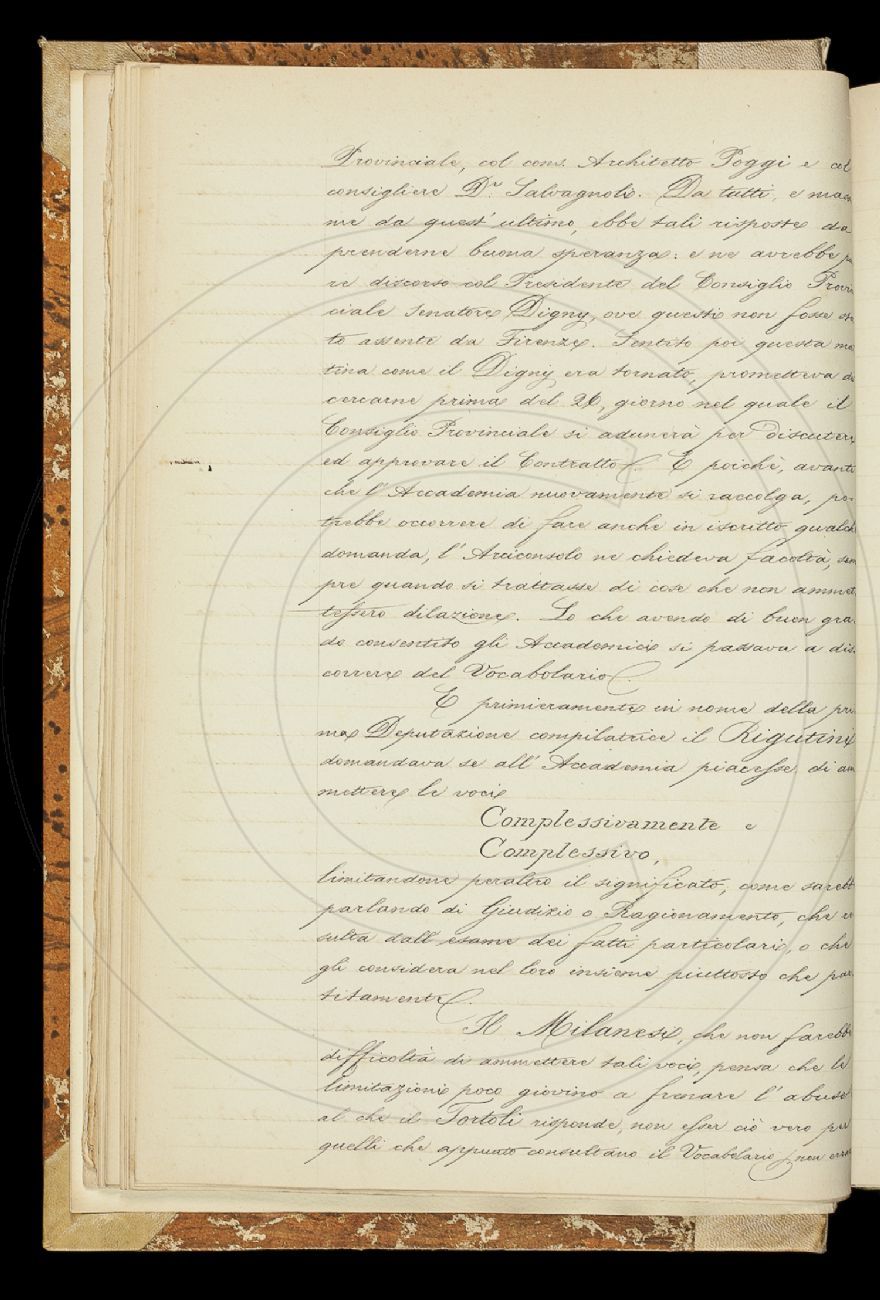 Provinciale, col cons. Architetto Poggi e col
consigliere D.r Salvagnoli. Da tutti, e mas
me da quest' ultimo, ebbe tali risposte da
prenderne buona speranza: e ne avrebbe pu
re discorso col Presidente del Consiglio Provin
ciale Senatore Digny, ove questi non fosse sta
to assente da Firenze. Sentito poi questa mat
tina come il Digny era tornato, prometteva di
cercarne prima del 26, giorno nel quale il
Consiglio Provinciale si adunerà per discutere
ed approvare il Contratto. E poichè, avanti
che l' Accademia nuovamente si raccolga, po-
trebbe occorrere di fare anche in iscritto qualche
domanda, l' Arciconsolo ne chiedeva facoltà, sem
pre quando si trattasse di cose che non ammet
tessero dilazione. Lo che avendo di buon gra-
do consentito gli Accademici si passava a dis-
correre del Vocabolario.
E primieramente in nome della pri-
ma Deputazione compilatrice il Rigutini
domandava se all' Accademia piacesse di am
mettere le voci
Complessivamente e
Complessivo,
limitandone peraltro il significato, come sarebbe
parlando di Giudizio o Ragionamento, che re
sulta dall' esame dei fatti particolari, o che
gli considera nel loro insieme piuttosto che par
titamente.
Il Milanesi, che non farebbe
difficoltà di ammettere tali voci, pensa che le
limitazioni poco giovino a frenare l' abuso
al che il Tortoli risponde, non esser ciò vero per
quelli che appunto consultano il Vocabolario, non